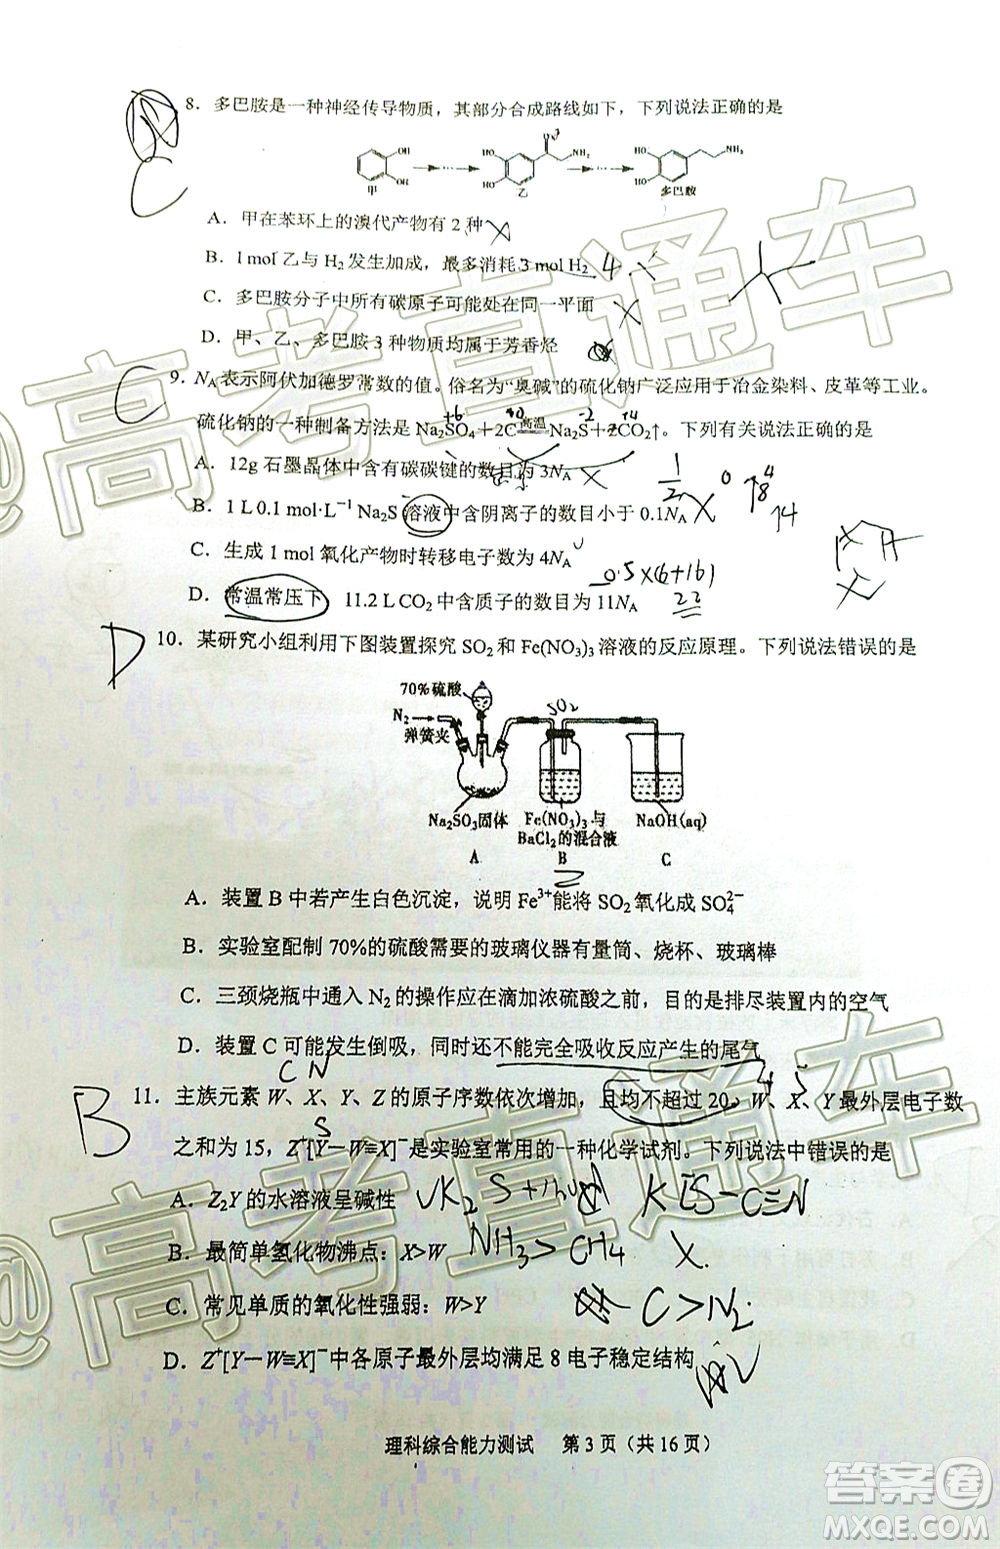 8. 多巴胺是一种神经传导物质，其部分合成路线如下，下列说法正确的是
OH OH 甲 HO HO NH₂ 乙 HO HO NH₂ 多巴胺
A. 甲在苯环上的溴代产物有 2 种
B. 1 mol 乙与 H₂ 发生加成，最多消耗 3 mol H₂ 4
C. 多巴胺分子中所有碳原子可能处在同一平面
D. 甲、乙、多巴胺 3 种物质均属于芳香烃
C
C
9. Nᴀ表示阿伏加德罗常数的值。俗名为“臭碱”的硫化钠广泛应用于冶金染料、皮革等工业。
+6 -2 +4
硫化钠的一种制备方法是 Na₂SO₄+2C 高温 Na₂S+2CO₂↑。下列有关说法正确的是
A. 12g 石墨晶体中含有碳碳键的数目为 3Nᴀ
B. 1 L 0.1 mol·L⁻¹ Na₂S 溶液中含阴离子的数目小于 0.1Nᴀ
C. 生成 1 mol 氧化产物时转移电子数为 4Nᴀ
0.5×(6+16)
D. 常温常压下 11.2 L CO₂ 中含质子的数目为 11Nᴀ 22
D
10. 某研究小组利用下图装置探究 SO₂ 和 Fe(NO₃)₃ 溶液的反应原理。下列说法错误的是
70%硫酸 SO₂
N₂
弹簧夹
Na₂SO₃固体 Fe(NO₃)₃与 NaOH(aq)
BaCl₂的混合液
A B C
A. 装置 B 中若产生白色沉淀，说明 Fe³⁺能将 SO₂ 氧化成 SO₄²⁻
B. 实验室配制 70%的硫酸需要的玻璃仪器有量筒、烧杯、玻璃棒
C. 三颈烧瓶中通入 N₂ 的操作应在滴加浓硫酸之前，目的是排尽装置内的空气
D. 装置 C 可能发生倒吸，同时还不能完全吸收反应产生的尾气
C N S
B
11. 主族元素 W、X、Y、Z 的原子序数依次增加，且均不超过 20。W、X、Y 最外层电子数
S
之和为 15，Z⁺[Y—W≡X]⁻是实验室常用的一种化学试剂。下列说法中错误的是
A. Z₂Y 的水溶液呈碱性 K₂S K[S-C≡N
B. 最简单氢化物沸点：X>W NH₃>CH₄
C. 常见单质的氧化性强弱：W>Y C>N₂
D. Z⁺[Y—W≡X]⁻中各原子最外层均满足 8 电子稳定结构
理科综合能力测试 第 3 页（共 16 页）
@高考直通车
@高考直通车
答案圈
MXQE.COM